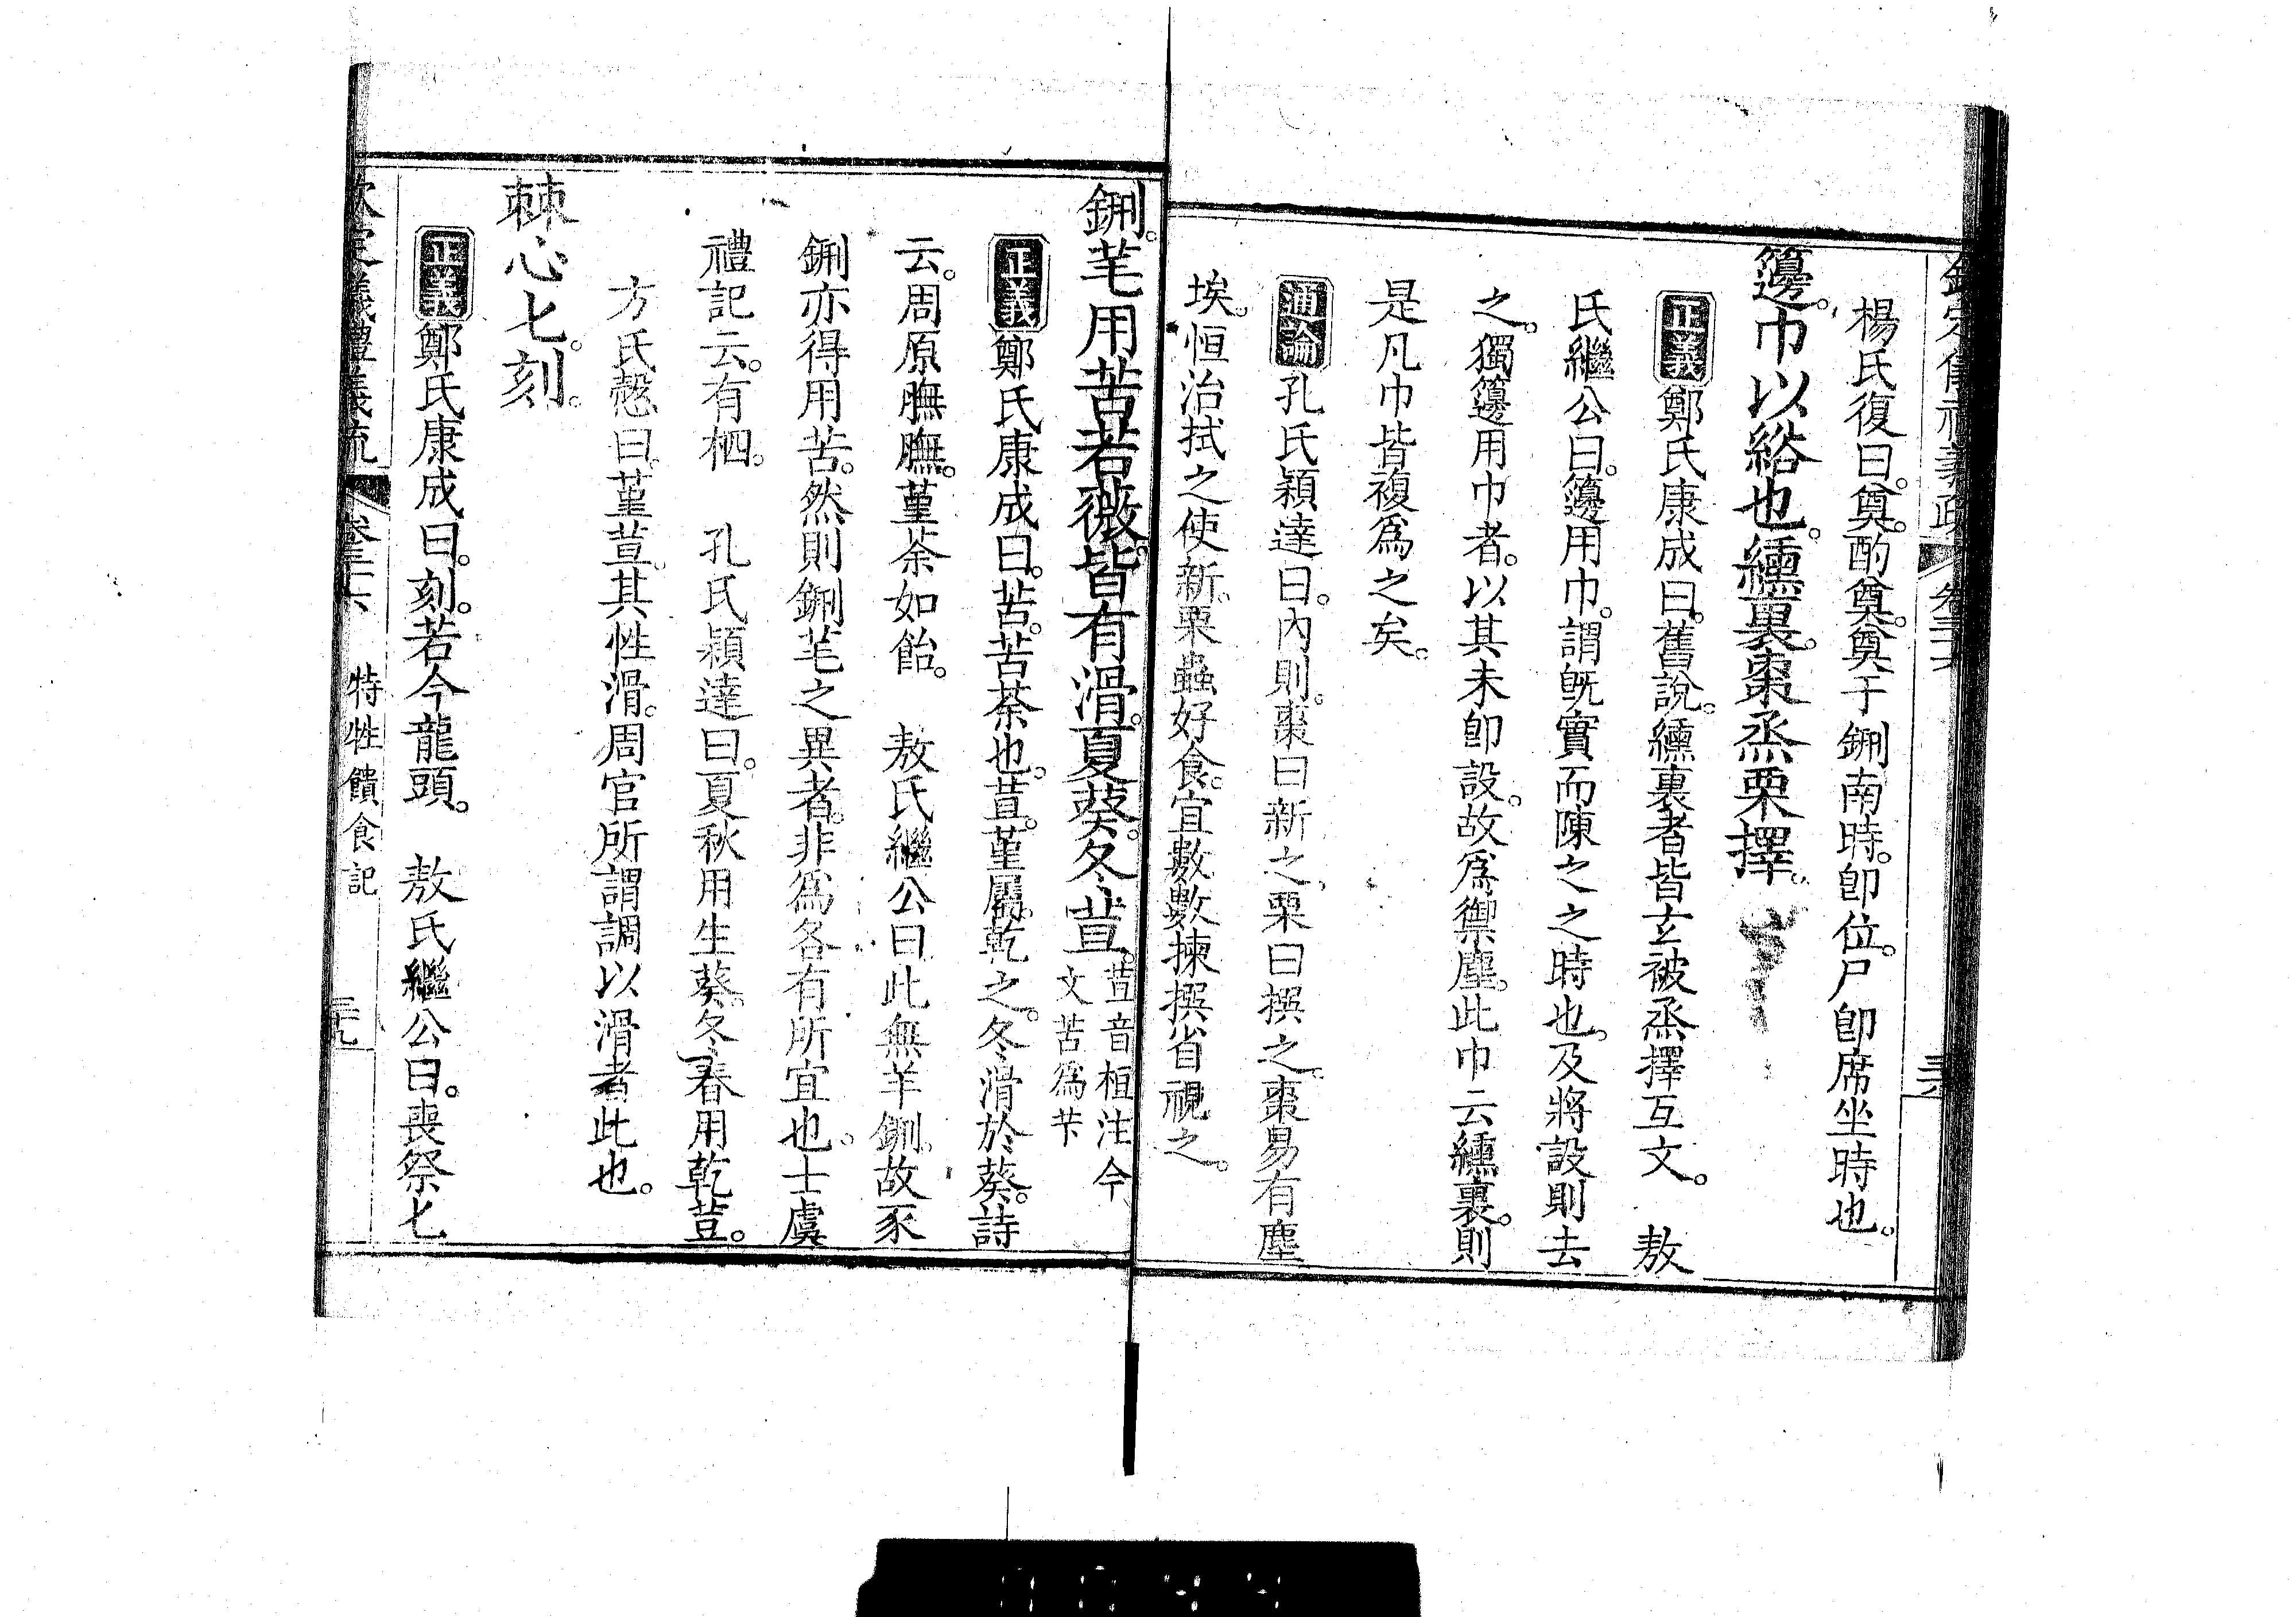 楊氏復曰。奠。酌奠。奠于鉶南時。卽位。尸卽席坐時也。
籩。巾以綌也。纁裏。棗烝栗擇。
正義鄭氏康成曰。舊說。纁裏者皆玄被烝擇互文。　敖
氏繼公曰。籩用巾。謂旣實而陳之之時也。及將設則去
之。獨籩用巾者。以其未卽設。故爲禦塵。此巾云纁裏。則
是凡巾皆複爲之矣。
通論孔氏穎達曰。內則。棗曰新之。栗曰撰之。棗易有塵
埃。恒治拭之使新。栗蟲好食。宜數數揀撰省視之。
鉶。芼用苦若薇。皆有滑。夏葵。冬荁。荁音桓注今
文苦爲芐
正義鄭氏康成曰。苦。苦荼也。荁。堇屬。乾之。冬滑於葵。詩
云。周原膴膴。堇荼如飴。　敖氏繼公曰此無羊鉶。故豕
鉶亦得用苦。然則鉶芼之異者。非爲各有所宜也。士虞
禮記云。有栖。　孔氏穎達曰。夏秋用生葵。冬春用乾荁。
方氏慤曰。堇荁。其性滑。周官所謂調以滑者此也。
棘心匕。刻。
正義鄭氏康成曰。刻。若今龍頭。　敖氏繼公曰。喪祭匕
特牲饋食記